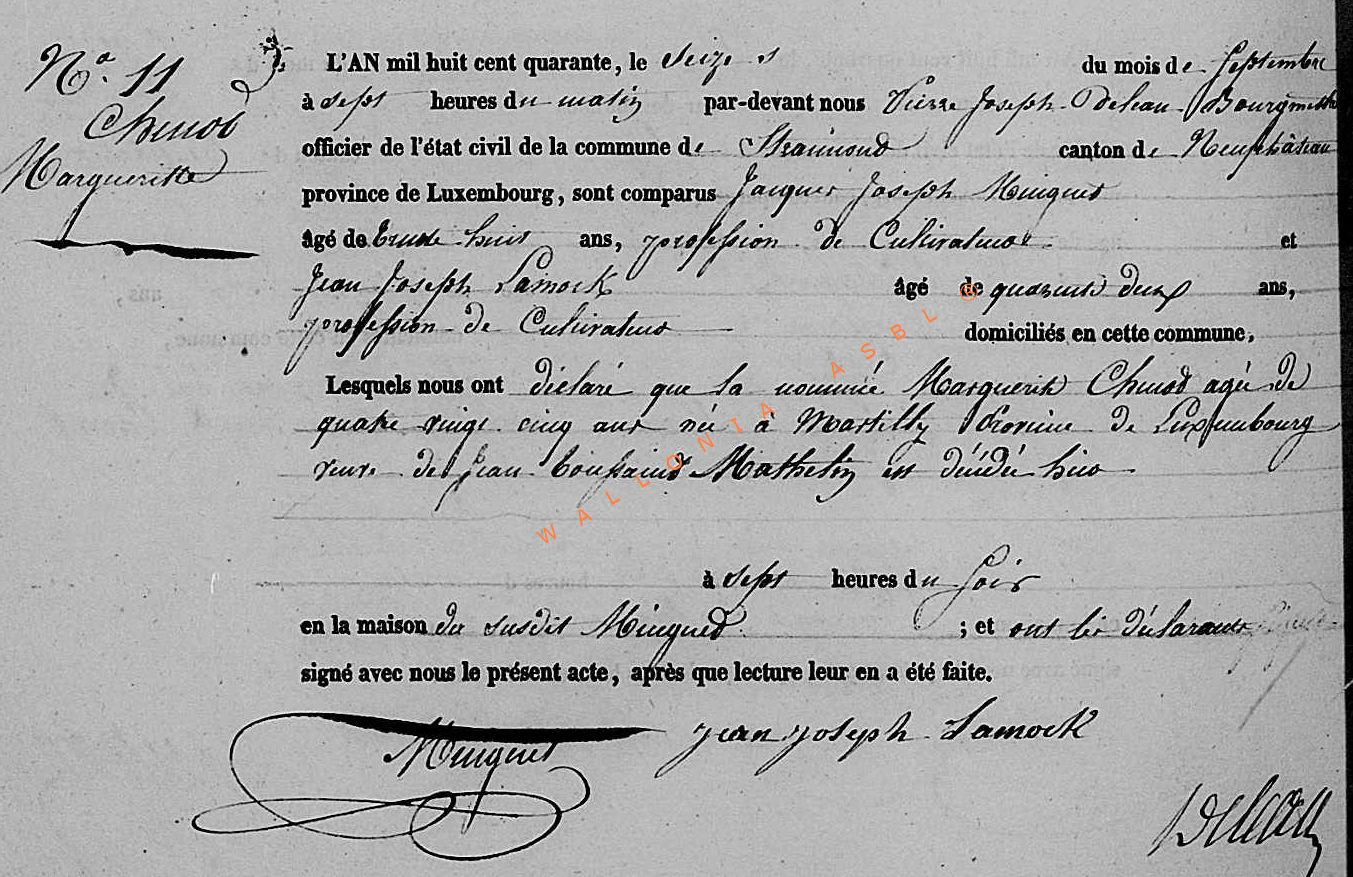 N.o 11
Chenot
Margueritte
L'AN mil huit cent quarante, le Seize du mois de Septembre
à sept heures du matin par-devant nous Pierre Joseph Deleau Bourgmestre
officier de l'état civil de la commune de Straimont canton de Neufchâteau
province de Luxembourg, sont comparus Jacques Joseph Minguet
âgé de trente huit ans, profession de Cultivateur et
Jean Joseph Lamock âgé de quarante deux ans,
profession de Cultivateur domiciliés en cette commune,
Lesquels nous ont déclaré que la nommée Marguerite Chenot agée de
quatre vingt cinq ans née à Martilly Province de Luxembourg
veuve de Jean toussaint Mathelin est décédée hier
à sept heures du soir
en la maison du susdit Minguet ; et ont les déclarants
signé avec nous le présent acte, après que lecture leur en a été faite.
Minguet Jean Joseph Lamock
Deleau
WALLONIA ASBL ©